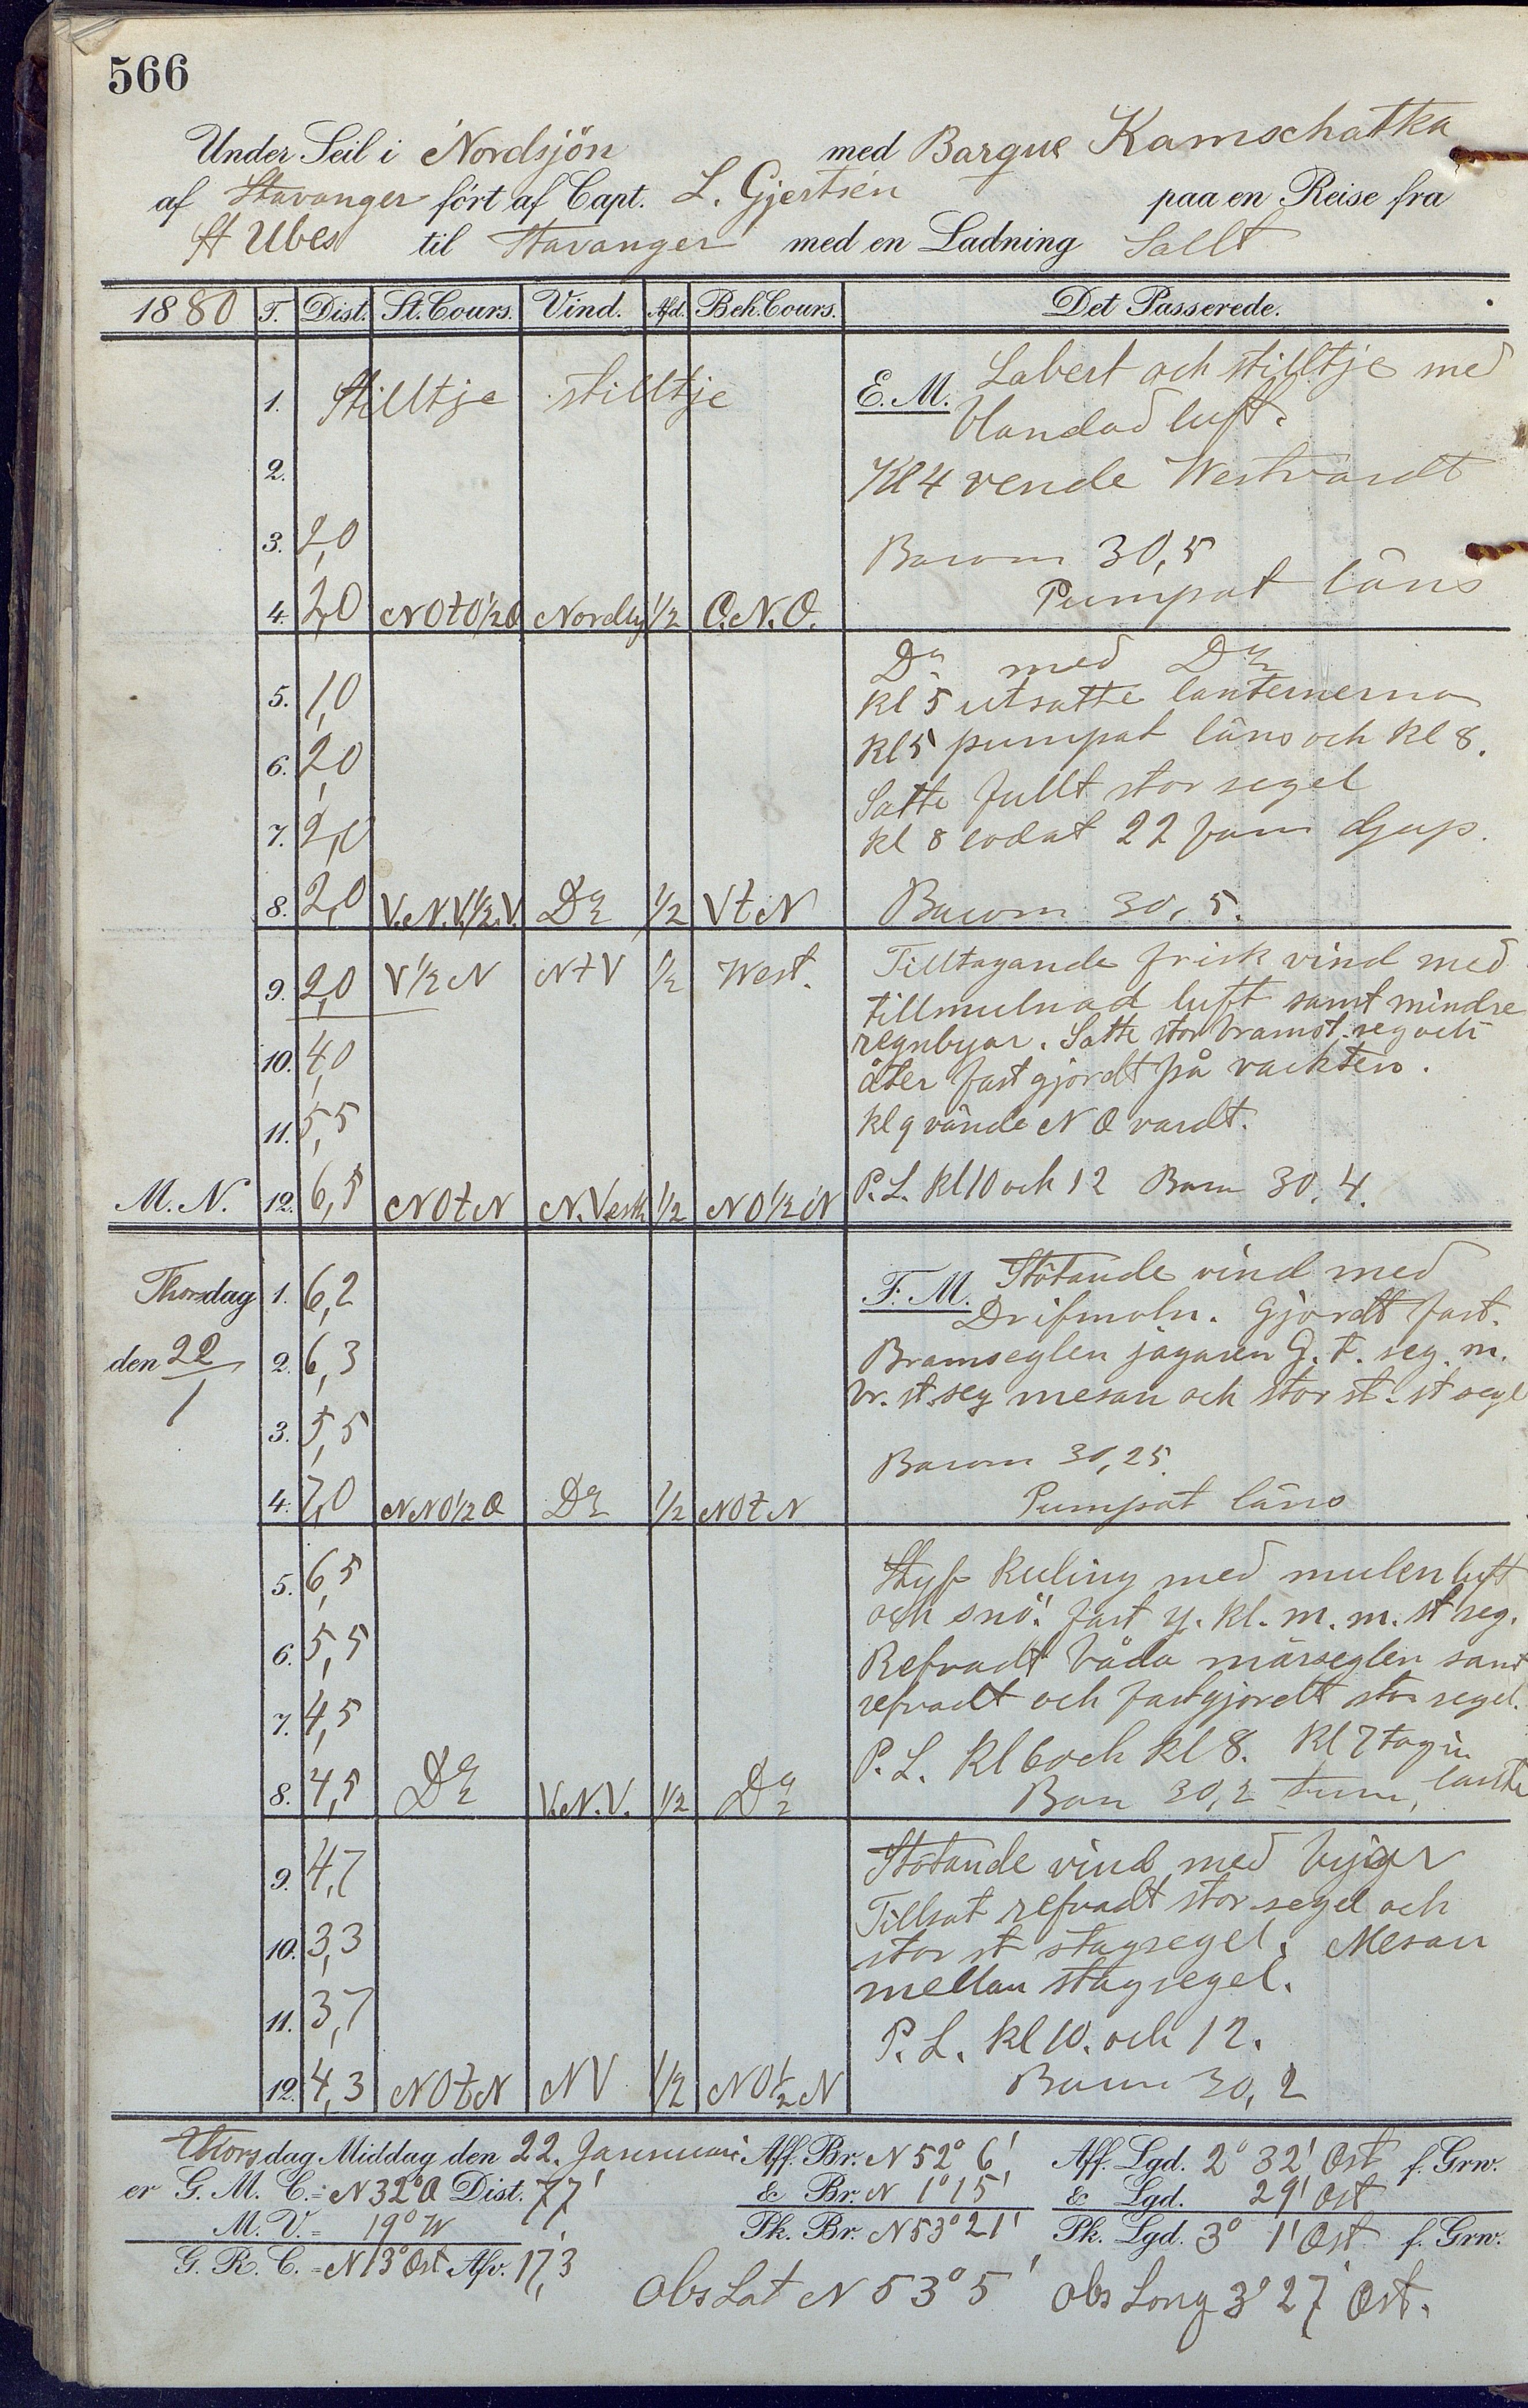 566
Under Seil i Nordsjön med Barque Kamschatka
af Stavanger ført af Capt. L. Gjertsen paa en Reise fra
St Ubes til Stavanger med en Ladning Sallt
1880 T. Dist. St. Cours. Vind. Afd. Beh. Cours. Det Passerede.
1. Stilltje stilltje E. M. Labert och stilltje med
blandad luft.
2. Kl 4 vende Westvardt
3. 2,0 Barom 30,5
4. 2,0 NOtO 1/2 O Nordlig 1/2 O.N.O. Pumpat läns
Do med Do
5. 1,0 kl 5 utsatte lanternerna
6. 2,0 kl 5 pumpat läns och kl 8.
Satte fullt stor segel
7. 2,0 kl 8 lodat 22 famn djup.
8. 2,0 V.N.V. 1/2 V. Do 1/2 VtN Barom 30,5.
9. 2,0 V 1/2 N NtV 1/2 West. Tilltagande frisk vind med
tillmulnad luft samt mindre
10. 4,0 regnbyar. Satte stor bramst. seg och
åter fast gjordt på vackten.
11. 5,5 kl 9 vände N O vardt.
M. N. 12. 6,5 NOtN N.Vestl 1/2 NO 1/2 N P. L. kl 10 och 12 Barm 30,4.
Thorsdag 1. 6,2 F. M. Stötande vind med
Drifmoln. Gjordt fast.
den 22/1 2. 6,3 Bramseglen jagaren G. t. seg. m.
br. st. seg mesan och stor st. st segl
3. 5,5 Barom 30,25.
4. 7,0 NNO 1/2 O Do 1/2 NOtN Pumpat läns
5. 6,5 Styf kuling med mulen luft
och snö. fast y. kl. m. m. st seg.
6. 5,5 Refvadt båda märseglen samt
7. 4,5 refvadt och fastgjordt stor segel.
P. L. kl 6 och kl 8. kl 7 tagin
8. 4,5 Do V.N.V. 1/2 Do Bar 30,2
9. 4,7 Stötande vind med byiger
Tillsat refvadt stor segel och
10. 3,3 stor st stagsegel. Mesan
mellan stagsegel.
11. 3,7 P. L. kl 10. och 12.
12. 4,3 NOtN NV 1/2 NO 1/2 N Barm 30,2
Thorsdag Middag den 22. Januari Aff. Br. N 52° 6' Aff. Lgd. 2° 32' Ost f. Grw.
er G. M. C. = N 32° O Dist. 77' & Br. N 1° 15' & Lgd. 29' Ost
M. V. = 19° W Pk. Br. N 53° 21' Pk. Lgd. 3° 1' Ost f. Grw.
G. R. C. = N 13° Ost Afv. 17,3
Obs Lat N 53° 5' Obs Long 3° 27' Ost.